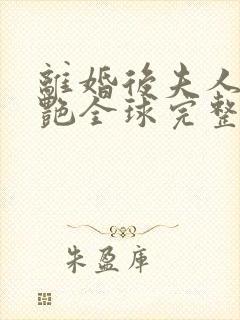 離婚後夫人
艷全球完整
朱盈庫